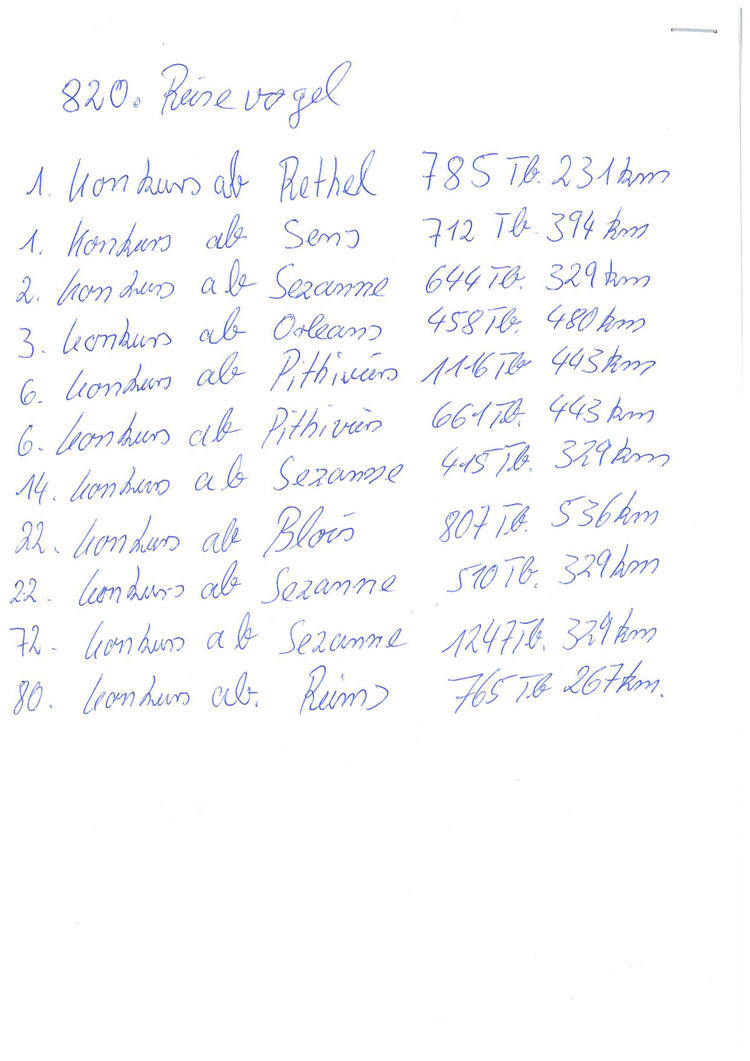 820. Reisevogel
1. Konkurs ab Rethel 785 Tb. 231 km
1. Konkurs ab Sens 712 Tb. 394 km
2. Konkurs ab Sezanne 644 Tb. 329 km
3. Konkurs ab Orleans 458 Tb. 480 km
6. Konkurs ab Pithiviers 1116 Tb 443 km
6. Konkurs ab Pithiviers 661 Tb. 443 km
14. Konkurs ab Sezanne 415 Tb. 329 km
22. Konkurs ab Blois 807 Tb. 536 km
22. Konkurs ab Sezanne 510 Tb. 329 km
72. Konkurs ab Sezanne 1247 Tb. 329 km
80. Konkurs ab. Reims 765 Tb 267 km.